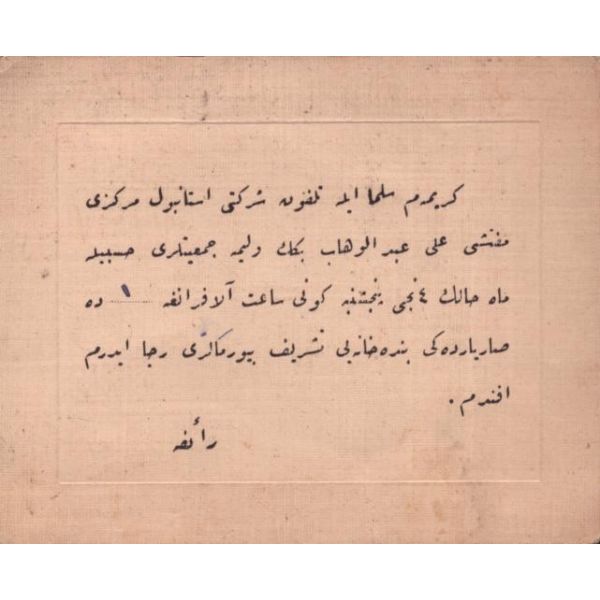 كريمه‌م سلما ايله تلفون شركتى استانبول مركزى
مفتشى على عبد الوهاب بكك وليمه جمعيتلرى حسبيله
ماه حالك ٤ نجى پنجشنبه كونى ساعت آلافرانغه ١ ده
صاريارده‌كى بنده‌خانه‌يى تشريف بيورمالرى رجا ايدرم
افندم .
رائفه